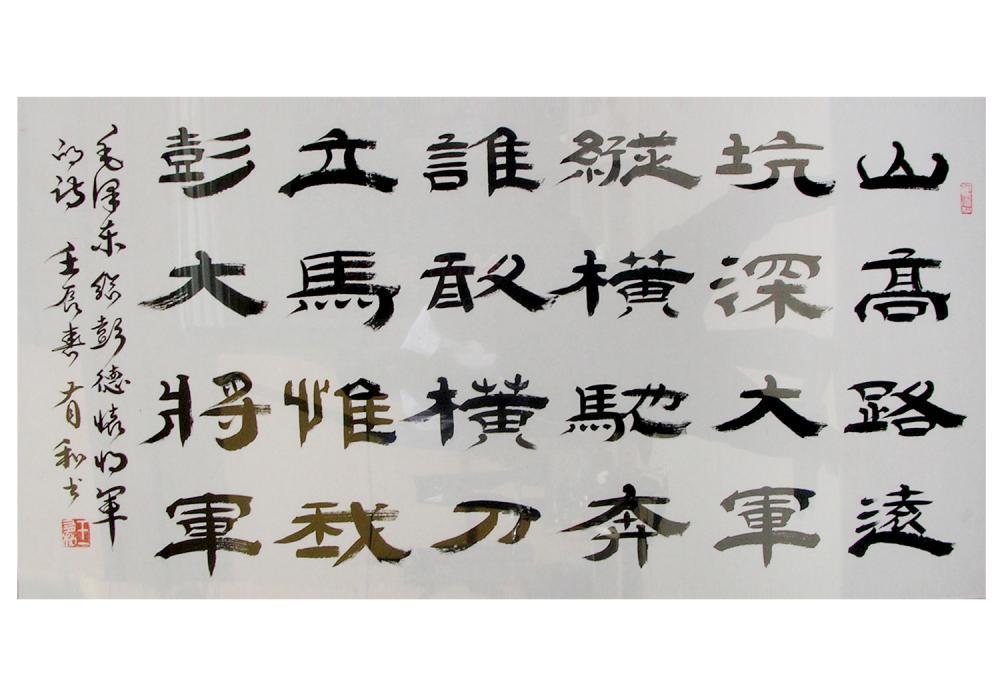 山高路遠
坑深大軍
縱橫馳奔
誰敢橫刀
立馬惟我
彭大將軍
毛泽东给彭德懷将军
的诗 壬辰春 有和书